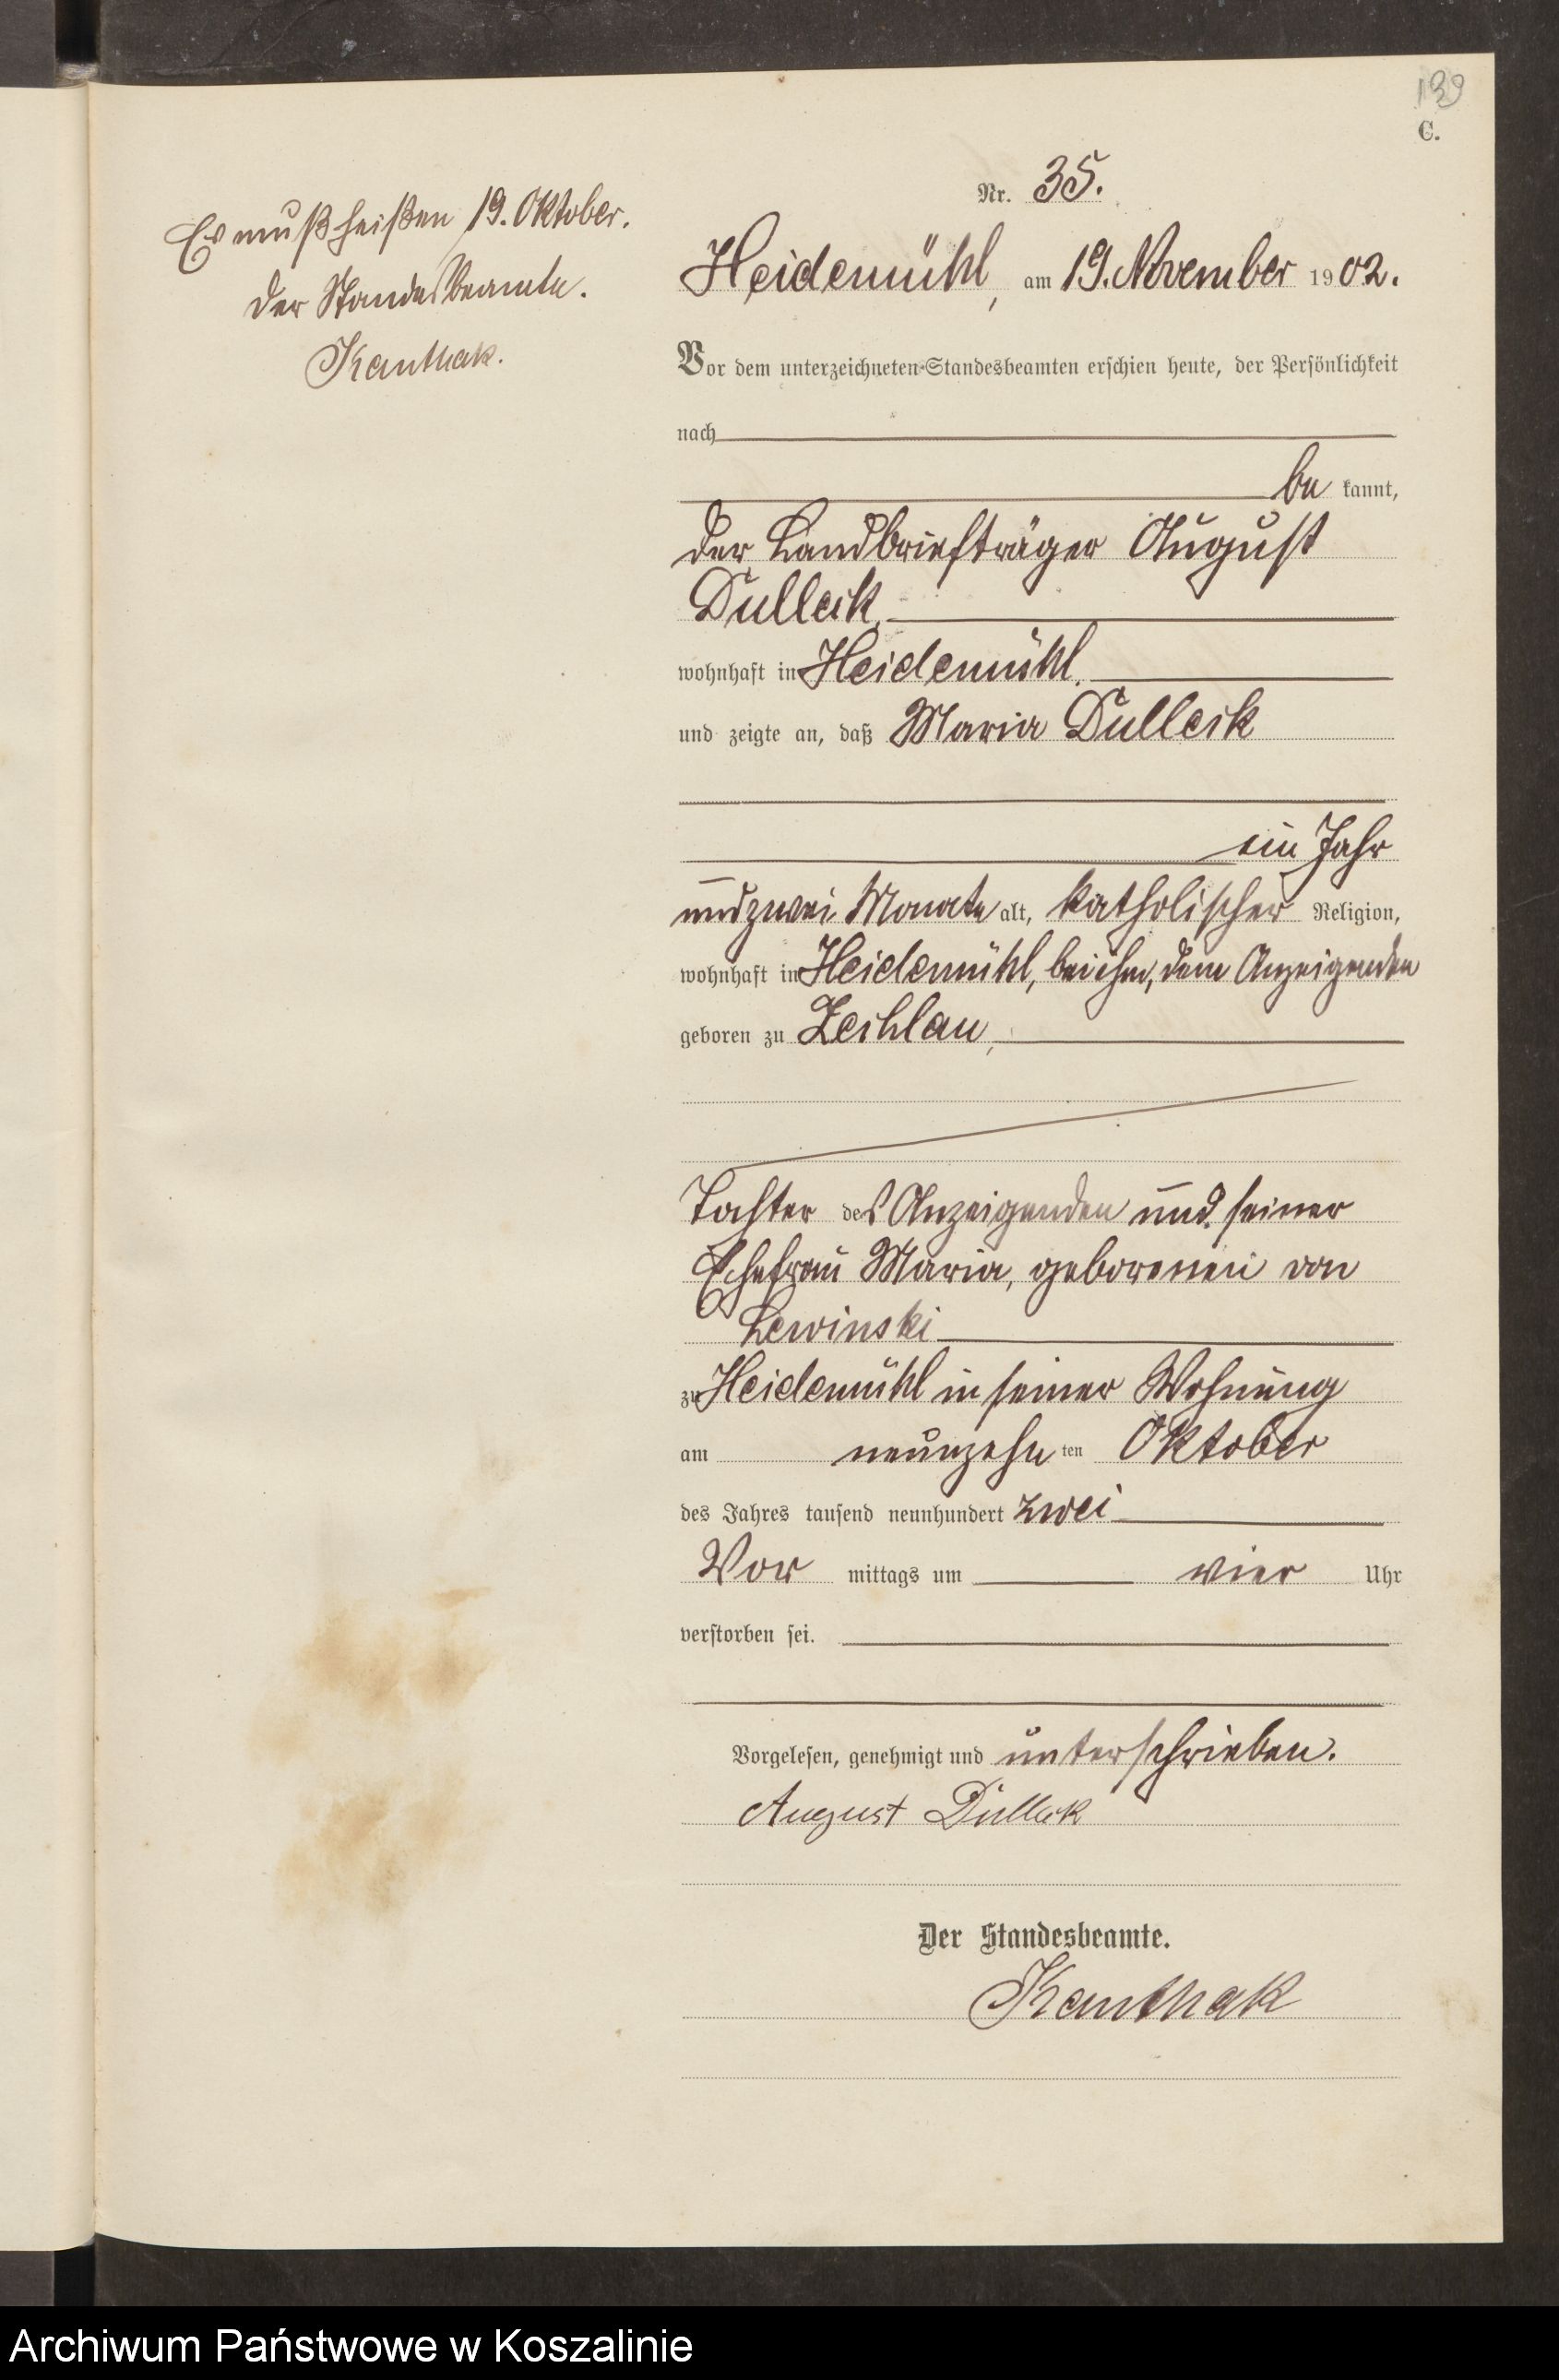 139
C.
Nr. 35.
Es muß heißen 19. Oktober.
Der Standesbeamte.
Kanthak.
Heidemühl, am 19. November 1902.
Vor dem unterzeichneten Standesbeamten erschien heute, der Persönlichkeit
nach
be kannt,
der Landbriefträger August
Dulleck,
wohnhaft in Heidemühl,
und zeigte an, daß Maria Dulleck
ein Jahr
und zwei Monate alt, katholischer Religion,
wohnhaft in Heidemühl, bei ihm, dem Anzeigenden
geboren zu Zechlau,
Tochter des Anzeigenden und seiner
Ehefrau Maria, geborenen von
Lewinski
zu Heidemühl in seiner Wohnung
am neunzehn ten Oktober
des Jahres tausend neunhundert zwei
Vor mittags um vier Uhr
verstorben sei.
Vorgelesen, genehmigt und unterschrieben.
August Dulleck
Der Standesbeamte.
Kanthak
Archiwum Państwowe w Koszalinie